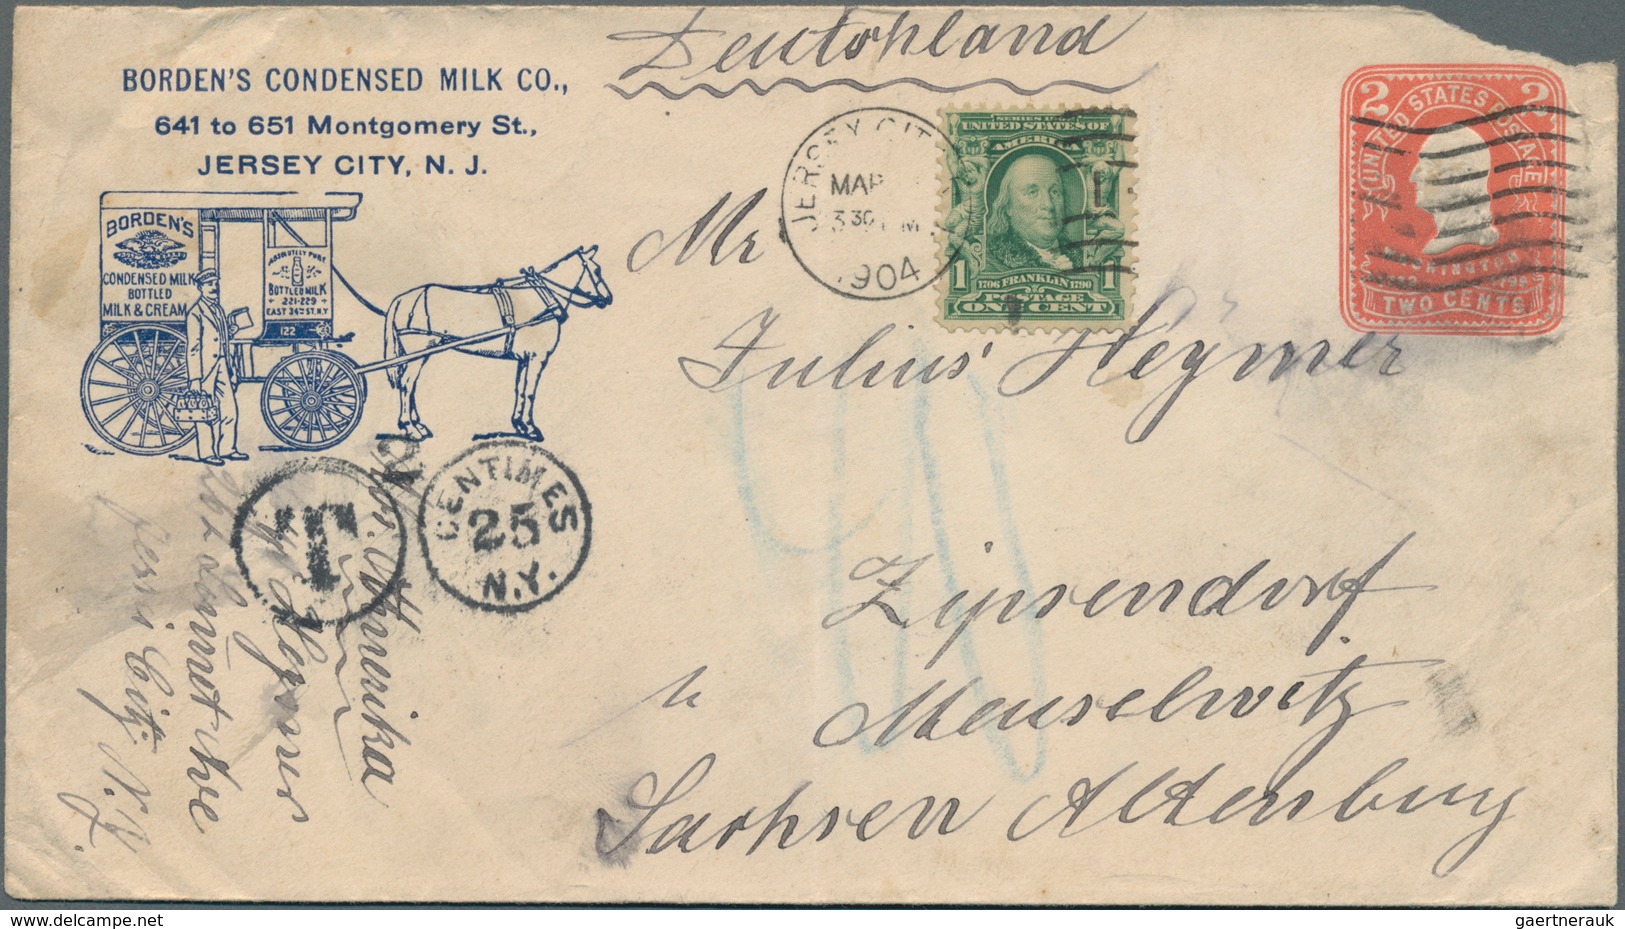 Deutschland
BORDEN'S CONDENSED MILK CO.,
641 to 651 Montgomery St.,
JERSEY CITY, N. J.
BORDEN'S
CONDENSED MILK
BOTTLED
MILK & CREAM
ABSOLUTELY PURE
BOTTLED MILK
221-229
EAST 34TH ST. N.Y
122
JERSEY CITY
MAR
3 30 PM
1904
UNITED STATES OF
AMERICA
1 1706 FRANKLIN 1790 1
POSTAGE
ONE CENT
2 UNITED STATES POSTAGE 2
TWO CENTS
Mr
Julius Heymer
Zipsendorf
Meuselwitz
Sachsen Altenburg
T
CENTIMES
25
N.Y.
Heymer
City N.Y.
delcampe.net
gaertnerauk